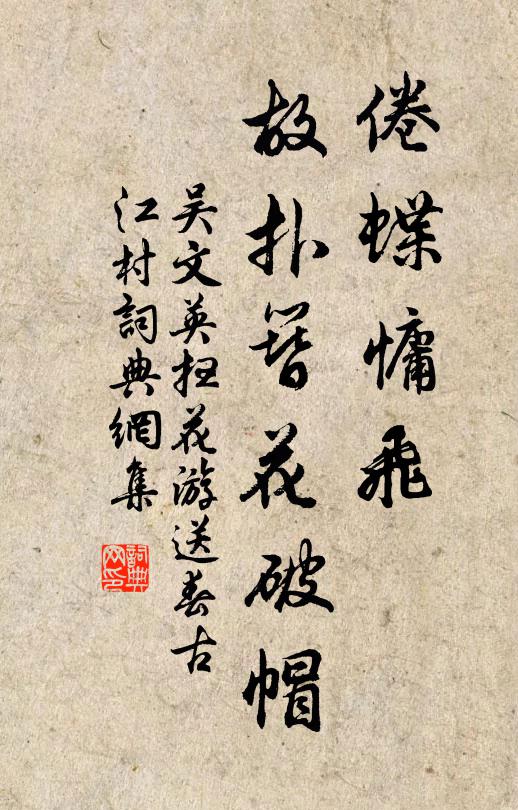 倦蝶慵飛
故扑簪花破帽
吴文英扫花游送春古
江村詞典網集
詞典网印